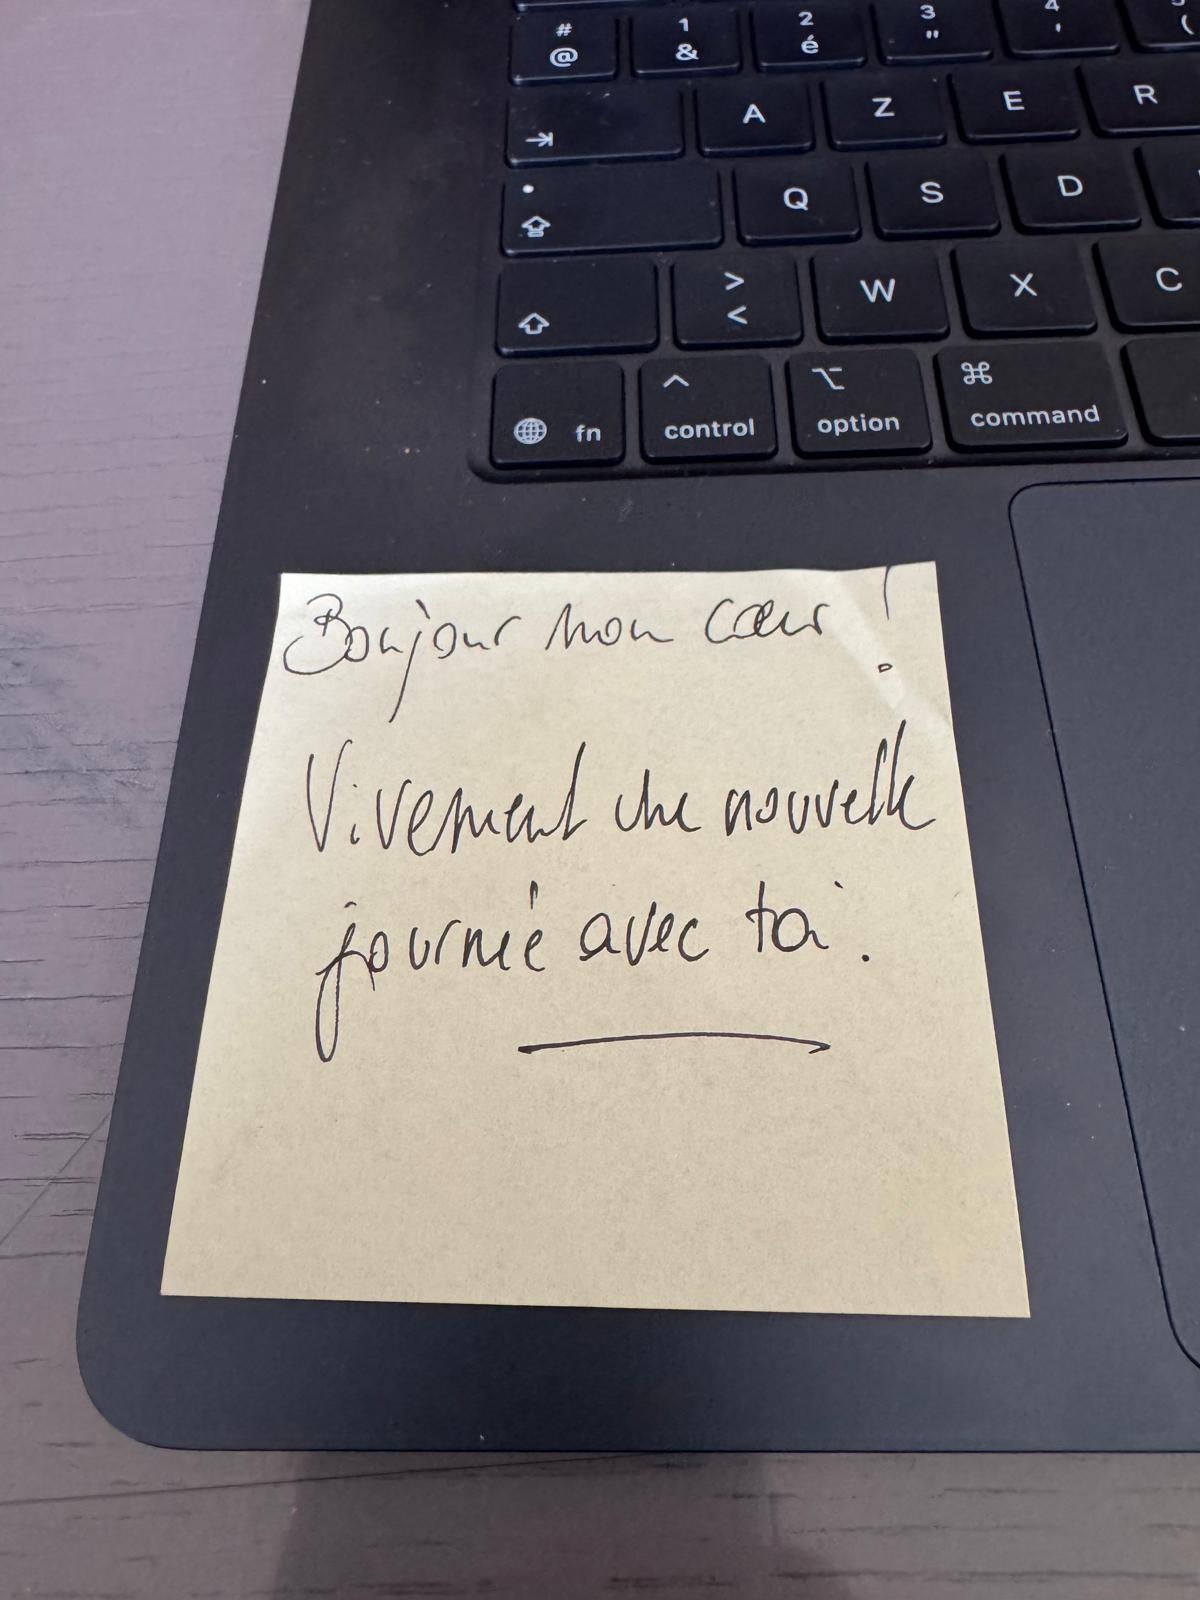 # 1 2 3 4 5
@ & é " ' (
A Z E R
Q S D
> W X C
<
fn control option command
Bonjour mon cœur !
Vivement une nouvelle
journée avec toi.